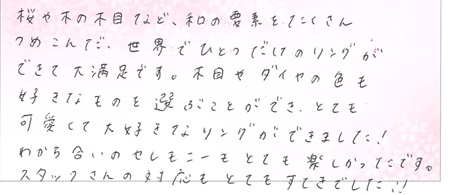 桜や木の木目など、和の要素をたくさん
つめこんだ、世界でひとつだけのリングが
できて大満足です。木目やダイヤの色も
好きなものを選ぶことができ、とても
可愛くて大好きなリングができました!
わかち合いのセレモニーもとても楽しかったです。
スタッフさんの対応もとてもすてきでした!!